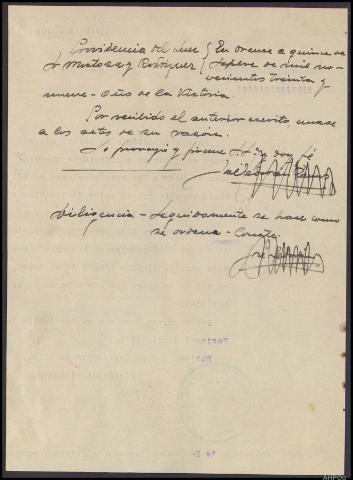 Providencia del Juez } En Orense a quince de
Sr Montoya y Rodriguez } Sepbre de mil no-
vecientos treinta y
nueve - Año de la Victoria.
Por recibido el anterior escrito, unase
a los autos de su razón.
Lo proveyó y firma S. Sª doy fé
Diligencia - Seguidamente se hace como
se ordena - Conste.
AHPOU